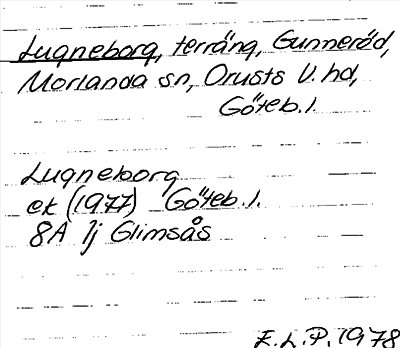 Lugneborg, terräng, Gunneröd,
Morlanda sn, Orusts V. hd,
Göteb. l.
Lugneborg
ek (1977) Göteb. l.
8A 1j Glimsås
E.L.P. 1978